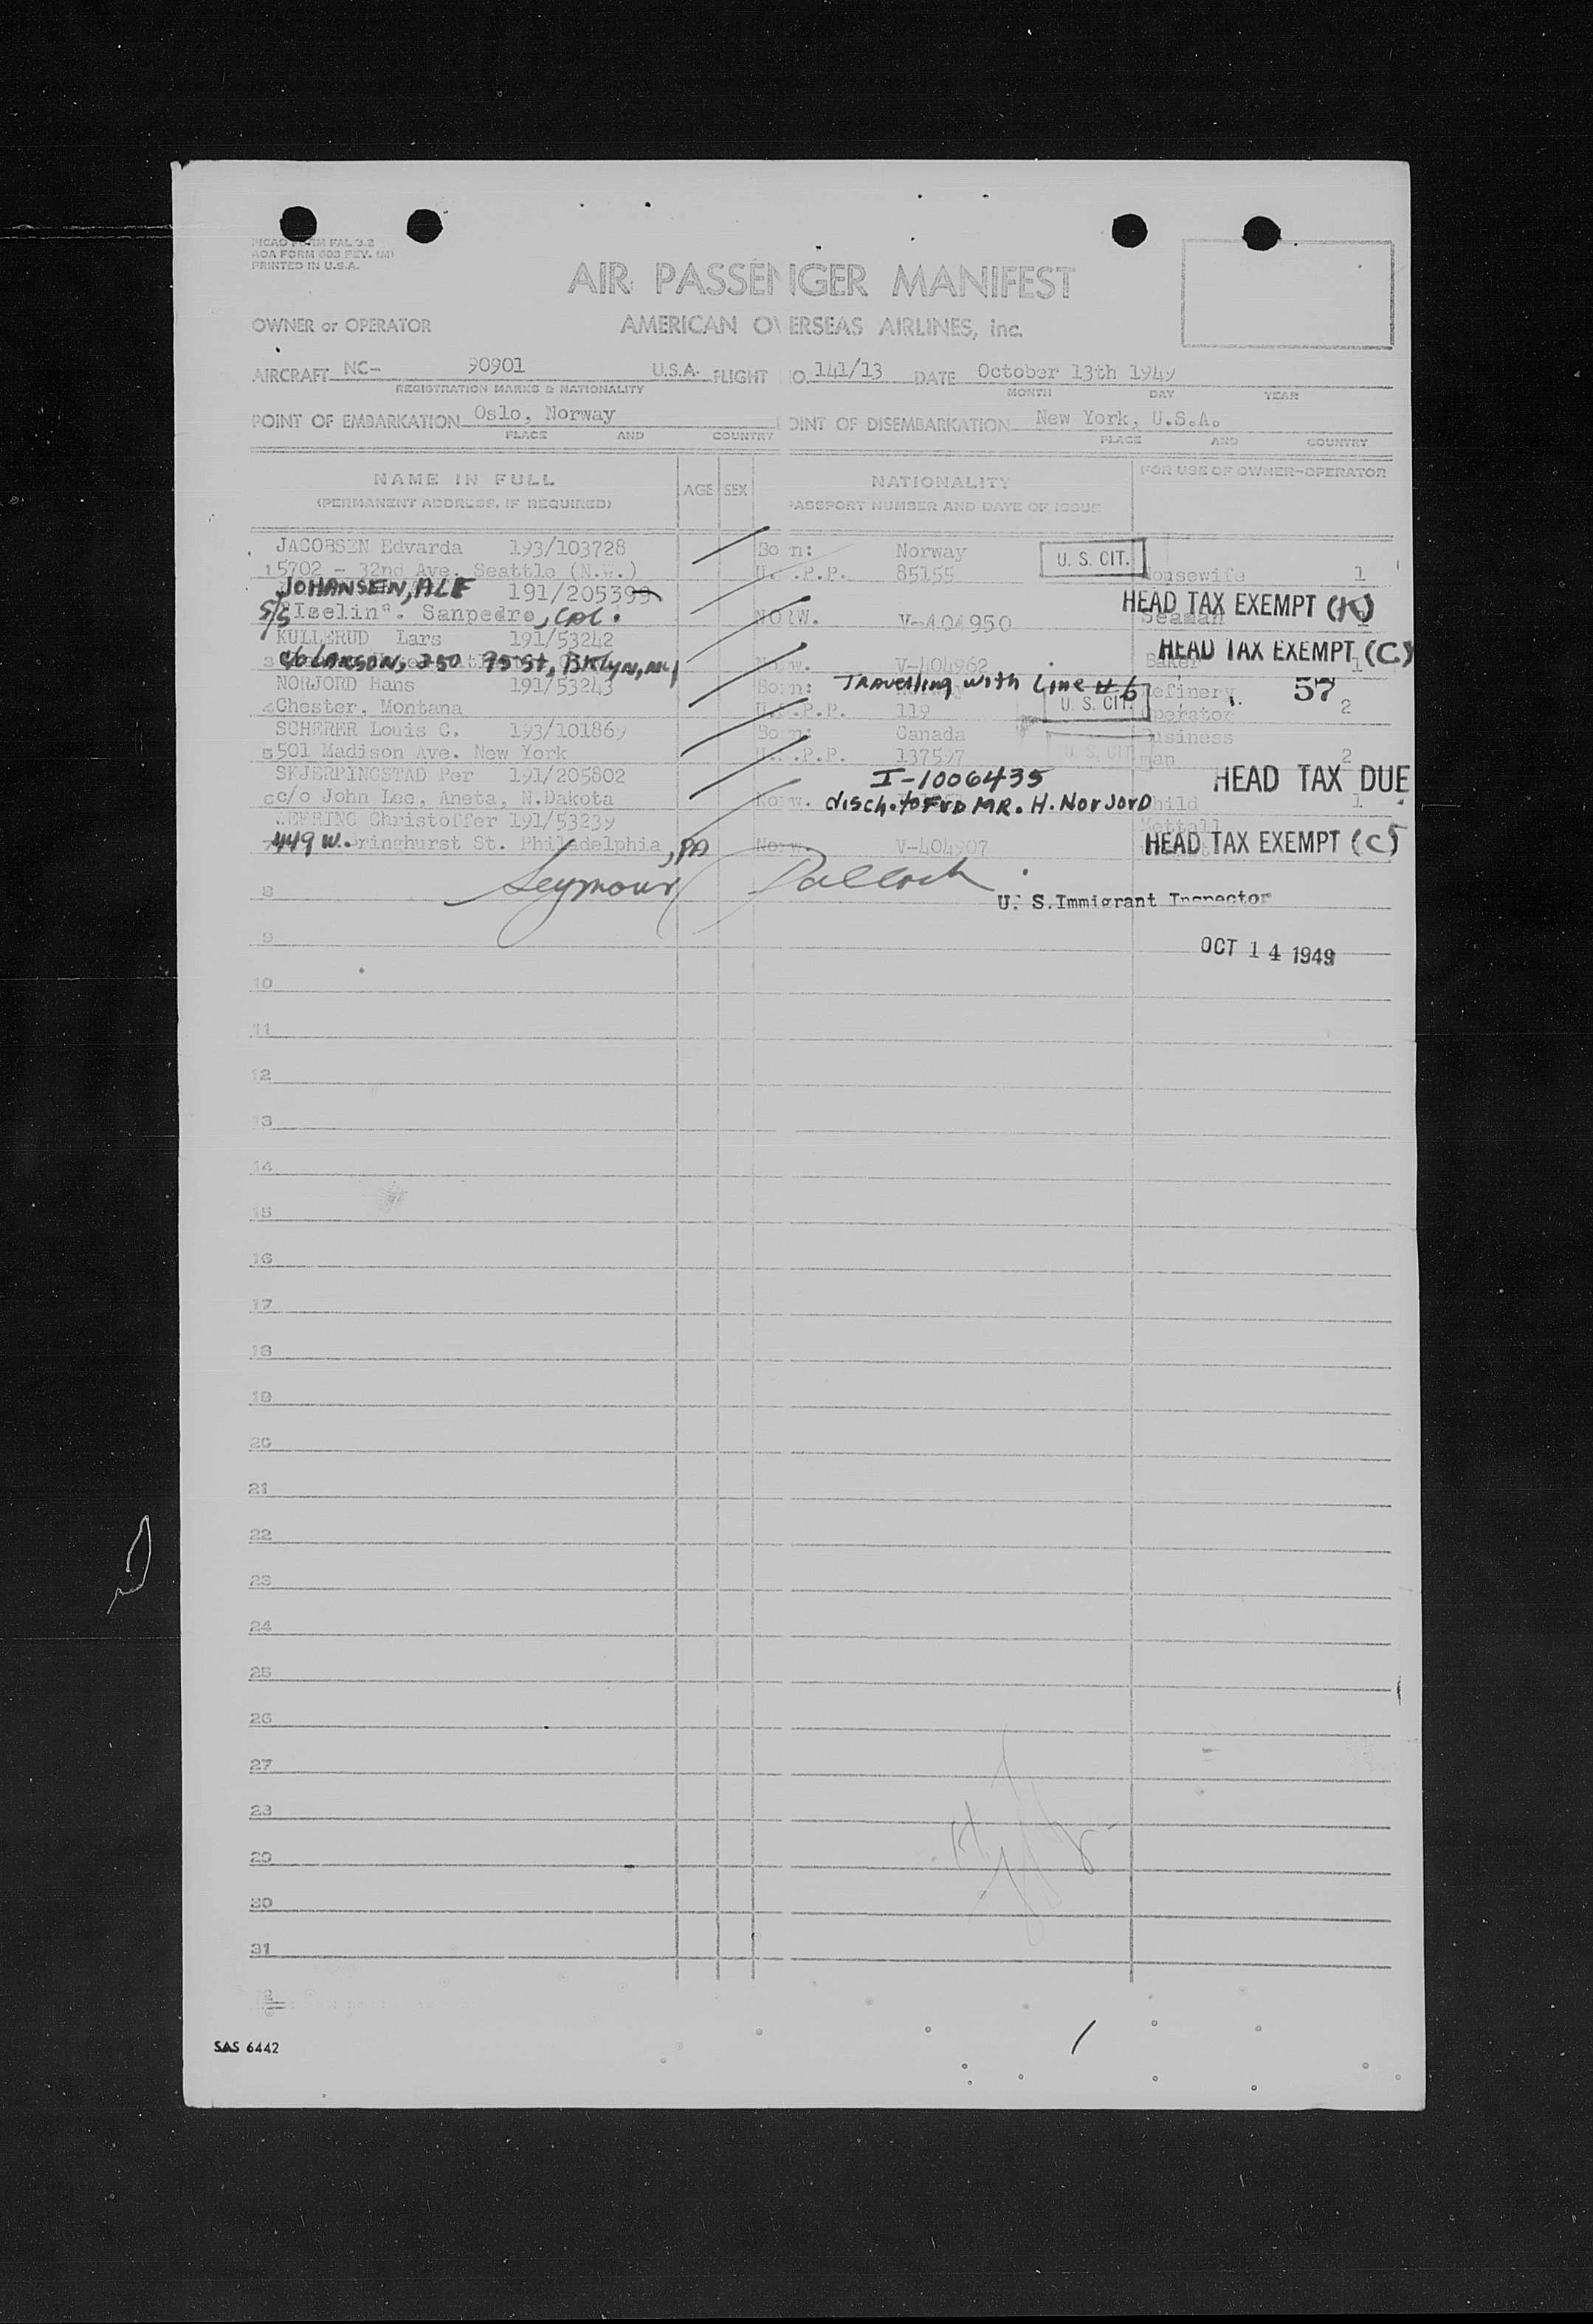 PICAO FORM FAL 3.2
AOA FORM 603 REV. (M)
PRINTED IN U.S.A.
AIR PASSENGER MANIFEST
OWNER or OPERATOR AMERICAN OVERSEAS AIRLINES, Inc.
AIRCRAFT NC- 90901 U.S.A. FLIGHT NO. 141/13 DATE October 13th 1949
REGISTRATION MARKS & NATIONALITY MONTH DAY YEAR
POINT OF EMBARKATION Oslo, Norway POINT OF DISEMBARKATION New York, U.S.A.
PLACE AND COUNTRY PLACE AND COUNTRY
NAME IN FULL AGE SEX NATIONALITY FOR USE OF OWNER-OPERATOR
(PERMANENT ADDRESS, IF REQUIRED) PASSPORT NUMBER AND DATE OF ISSUE
JACOBSEN Edvarda 193/103728 Born: Norway U. S. CIT.
1 5702 - 32nd Ave. Seattle (N.W.) U.S.P.P. 85155 Housewife 1
JOHANSEN, ALF 191/205399 HEAD TAX EXEMPT (K)
S/S "Iselin". Sanpedro, CAL. NORW. V-404950 Seaman
KULLERUD Lars 191/53242 HEAD TAX EXEMPT (C)
3 c/o LARSON, 250 95 St, BKlyn, NY Norw. V-404962 Baker 1
NORJORD Hans 191/53243 Born: Travelling with Line #6 Refinery 57
4 Chester, Montana U.S.P.P. 119 U. S. CIT. Operator 2
SCHERER Louis C. 193/101869 Born: Canada Business
5 501 Madison Ave. New York U.S.P.P. 137597 U. S. CIT. man 2
SKJERPINGSTAD Per 191/205802 I-1006435 HEAD TAX DUE
6 c/o John Lee, Aneta, N.Dakota Norw. disch. to FrD MR. H. NorJord Child 1
Christoffer 191/53239
449 W. Bringhurst St. Philadelphia, PA Norw. V-404907 HEAD TAX EXEMPT (C)
Seymour Pollock
8 U. S. Immigrant Inspector
9 OCT 14 1949
10
11
12
13
14
15
16
17
18
19
20
21
22
23
24
25
26
27
28
29
30
31
SAS 6442